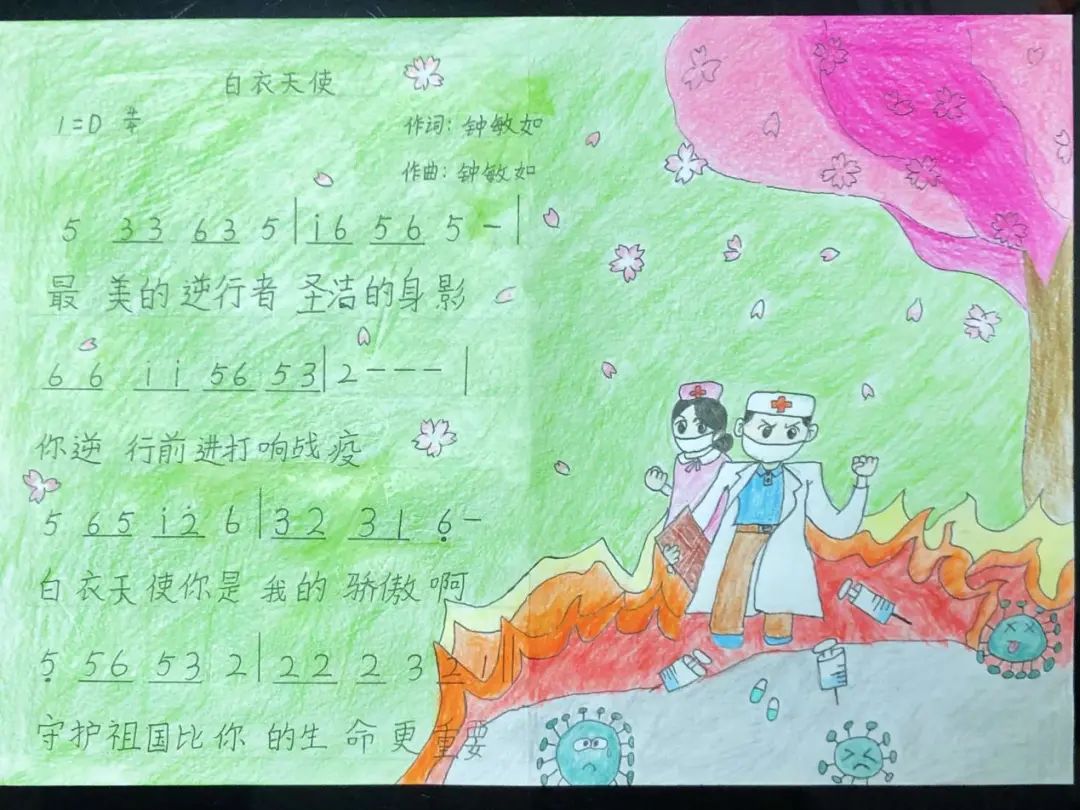 白衣天使
1=D 4/4
作词：钟敏如
作曲：钟敏如
5 33 63 5 | i6 56 5 - |
最 美的逆行者 圣洁的身影
66 ii 56 53 | 2 - - - |
你逆 行前进打响战疫
5 65 i2̇ 6 | 32 31 6̣ -
白衣天使你是 我的 骄傲啊
5̣ 56 53 2 | 22 2 3 21 ‖
守护祖国比你 的生 命更重要